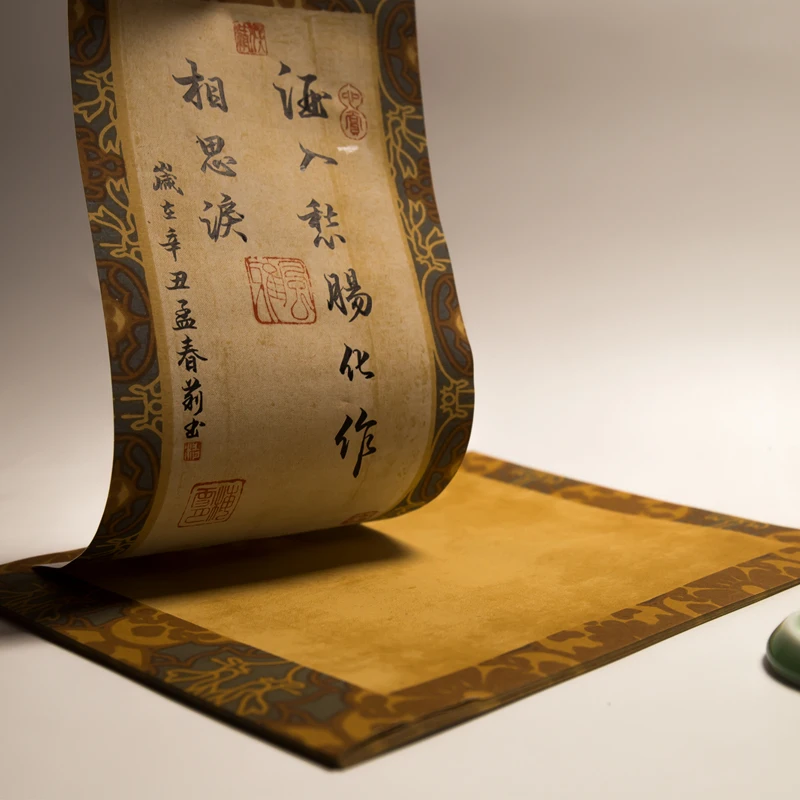 酒入愁腸化作
相思淚
歲在辛丑孟春莉书